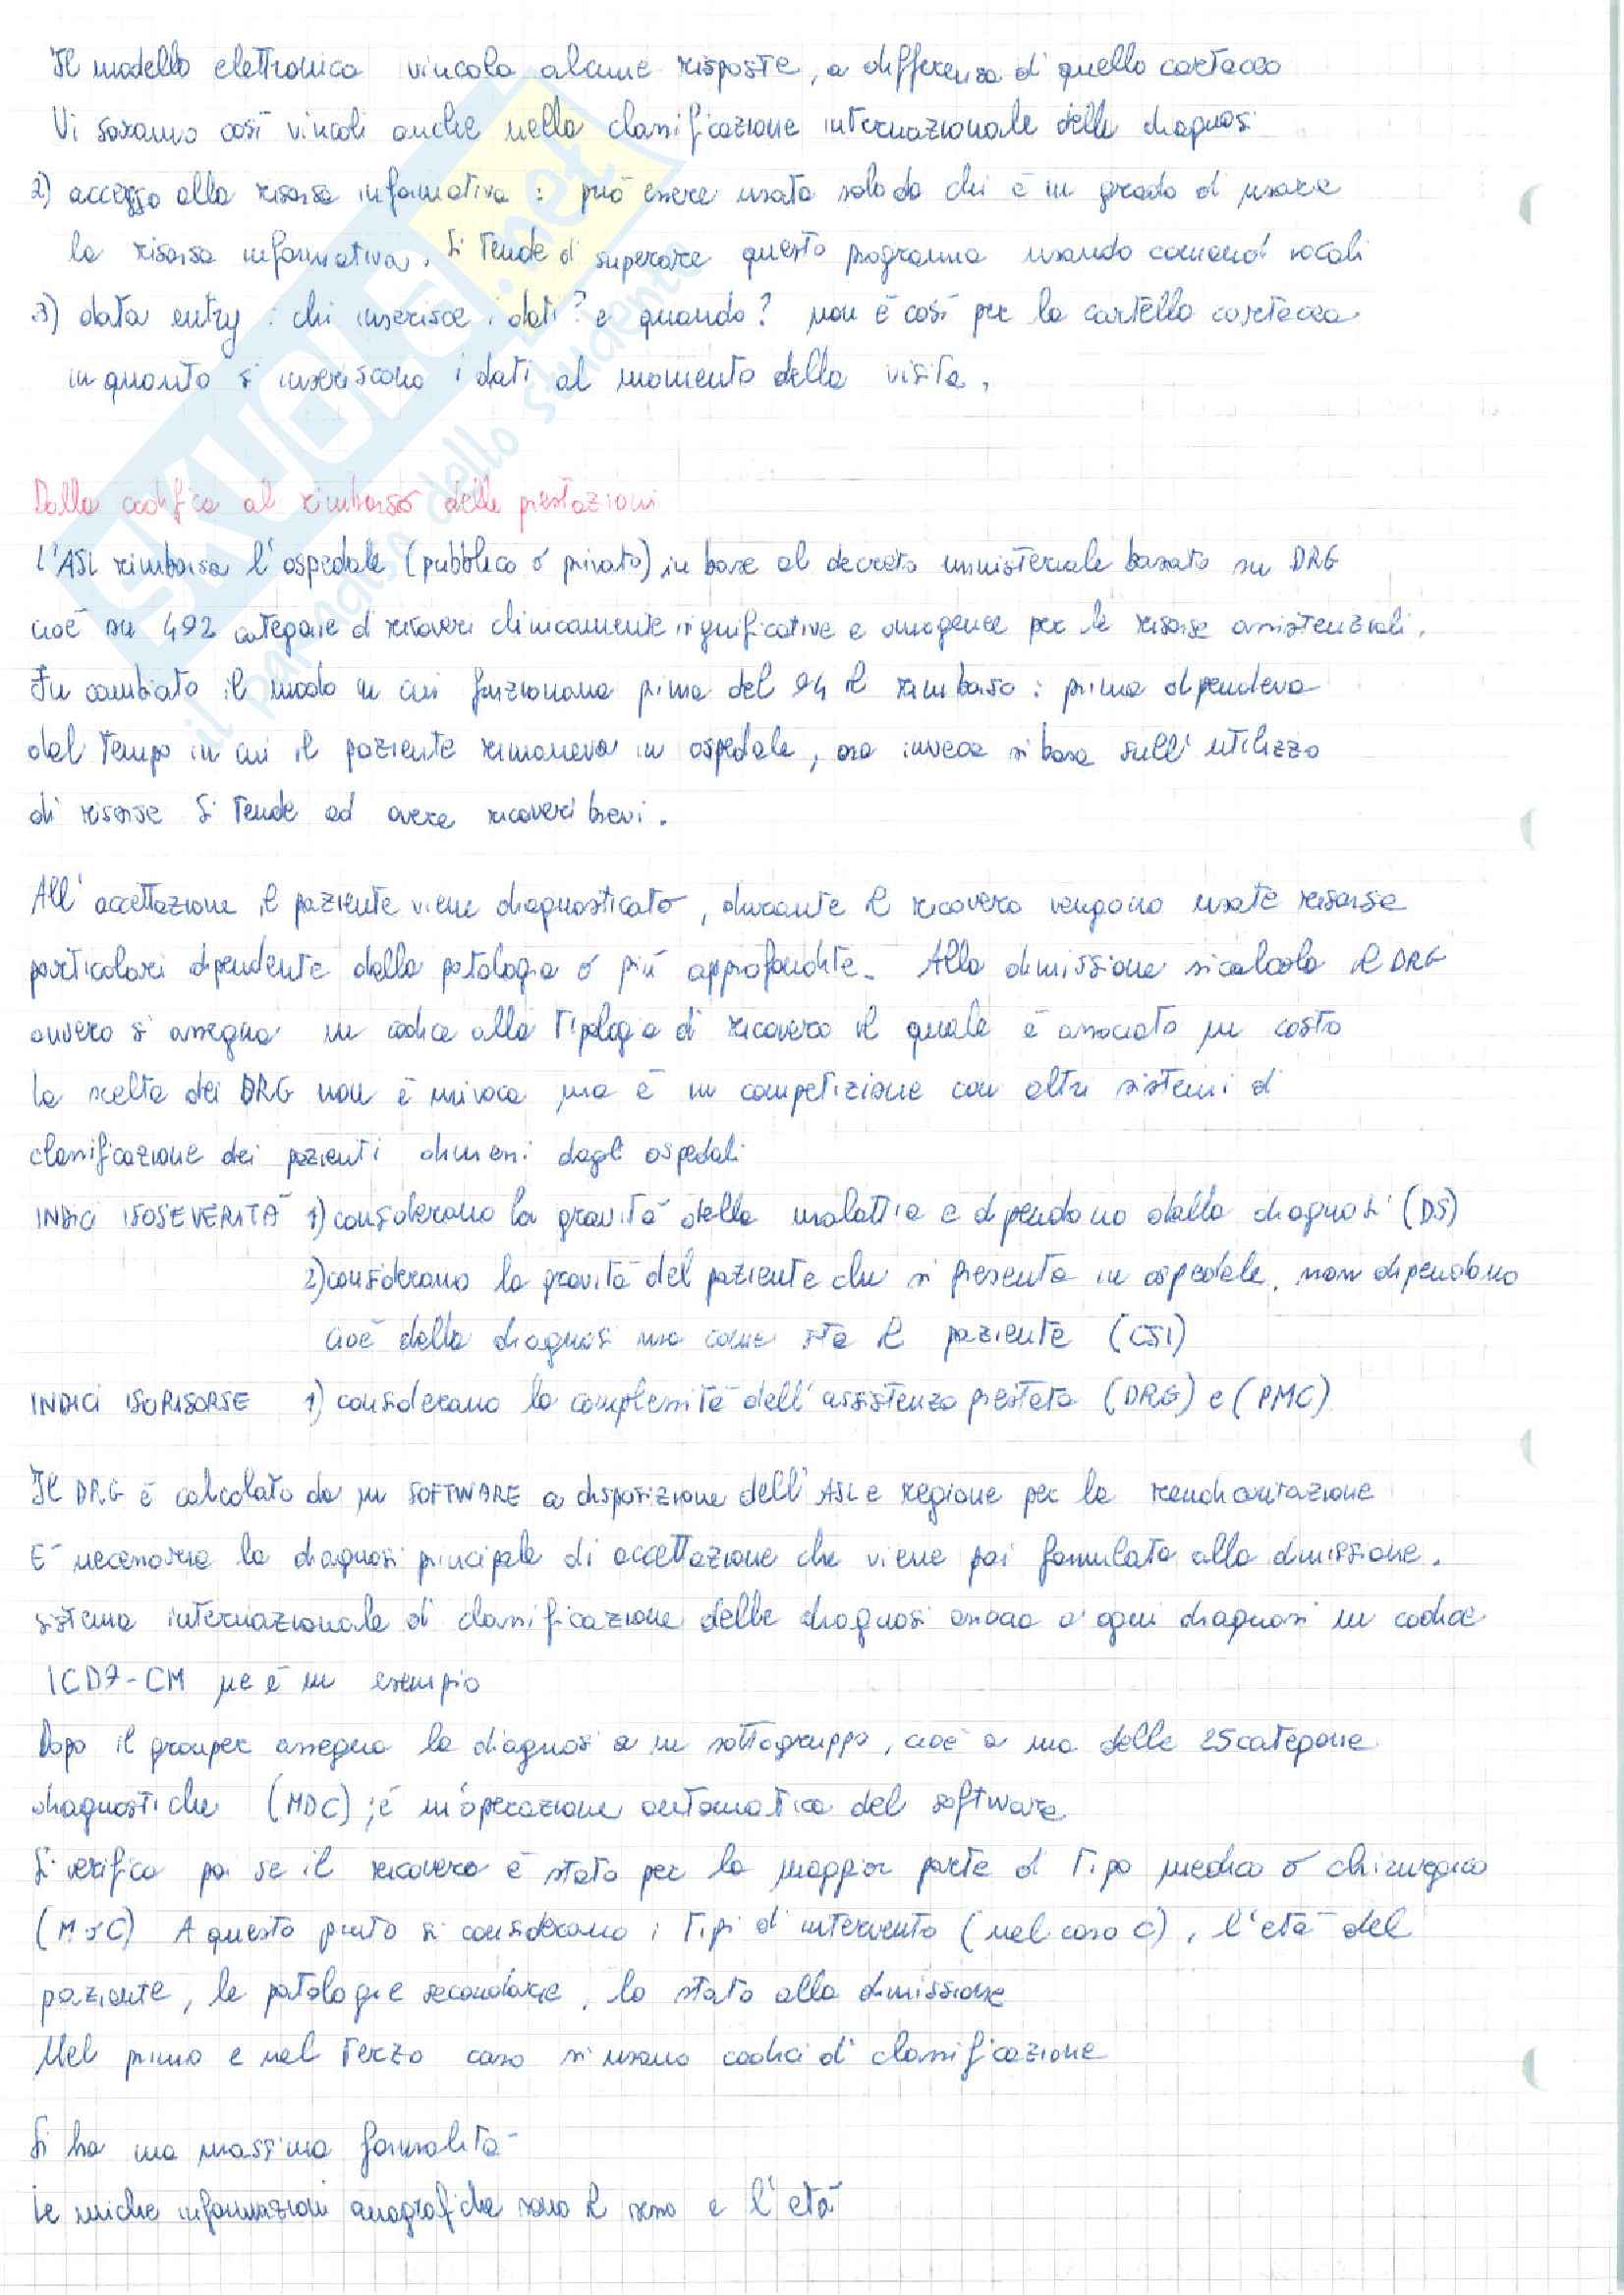 Il modello elettronico vincola alcune risposte, a differenza di quello cartaceo
Vi saranno così vincoli anche nella classificazione internazionale delle diagnosi
2) accesso alla risorsa informativa : può essere usata solo da chi è in grado di usare
la risorsa informativa. Si tende di superare questo programma usando comandi vocali
3) data entry : chi inserisce i dati? e quando? non è così per la cartella cartacea
in quanto si inseriscono i dati al momento della visita.
Dalla codifica al rimborso delle prestazioni
L'ASL rimborsa l'ospedale (pubblico o privato) in base al decreto ministeriale basato su DRG
cioè su 492 categorie di ricoveri clinicamente significative e omogenee per le risorse assistenziali.
Fu cambiato il modo in cui funzionava prima del 94 il rimborso : prima dipendeva
dal tempo in cui il paziente rimaneva in ospedale, ora invece si basa sull'utilizzo
di risorse Si tende ad avere ricoveri brevi.
All'accettazione il paziente viene diagnosticato, durante il ricovero vengono usate risorse
particolari dipendente dalla patologia o più approfondite. Alla dimissione si calcola il DRG
ovvero si assegna un codice alla tipologia di ricovero il quale è associato un costo
La scelta dei DRG non è univoca ma è in competizione con altri sistemi di
classificazione dei pazienti dimessi dagli ospedali
INDICI ISOSEVERITÀ 1) considerano la gravità della malattia e dipendono dalla diagnosi (DS)
2) considerano la gravità del paziente che si presenta in ospedale, non dipendono
cioè dalla diagnosi ma come sta il paziente (CSI)
INDICI ISORISORSE 1) considerano la complessità dell'assistenza prestata (DRG) e (PMC)
Il DRG è calcolato da un SOFTWARE a disposizione dell'ASL e regione per la
E' necessaria la diagnosi principale di accettazione che viene poi formulata alla dimissione.
sistema internazionale di classificazione delle diagnosi associa a ogni diagnosi un codice
ICD9-CM ne è un esempio
Dopo il grouper assegna la diagnosi a un sottogruppo, cioè a una delle 25 categorie
diagnostiche (MDC) ; è un'operazione automatica del software
Si verifica poi se il ricovero è stato per la maggior parte di tipo medico o chirurgico
(M o C) A questo punto si considerano i tipi di intervento (nel caso C), l'età del
paziente, le patologie secondarie, lo stato alla dimissione
Nel primo e nel terzo caso si usano codici di classificazione
Si ha una massima formalità
Le uniche informazioni anagrafiche sono il sesso e l'età
SKUOLA.net
il paradiso dello studente